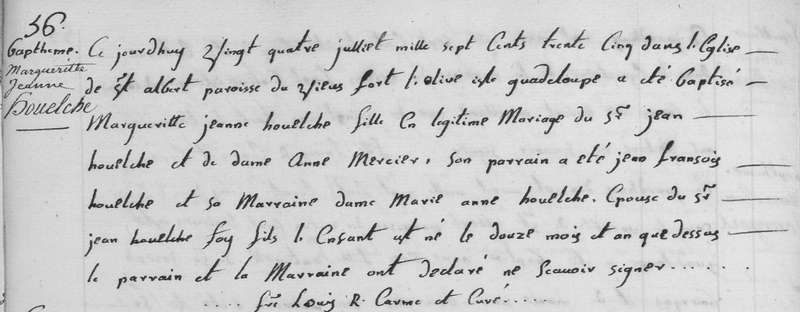 56.
Baptheme.
Margueritte
Jeanne
houelche
Ce jourdhuy Vingt quatre julliet mille sept Cents trente Cinq dans l'Eglise
de St albert paroisse du Vieux fort l'olive isle guadeloupe a eté Baptisé
Margueritte jeanne houelche fille En legitime Mariage du Sr jean
houelche et de dame Anne Mercier, son parrain a eté jean fransois
houelche et sa Marraine dame Marie anne houelche. Epouse du Sr
jean houelche foy fils l'Enfant est né le douze mois et an que dessus
le parrain et la Marraine ont declaré ne Scavoir signer.......
.... frs Louis R. Carme et Curé.....